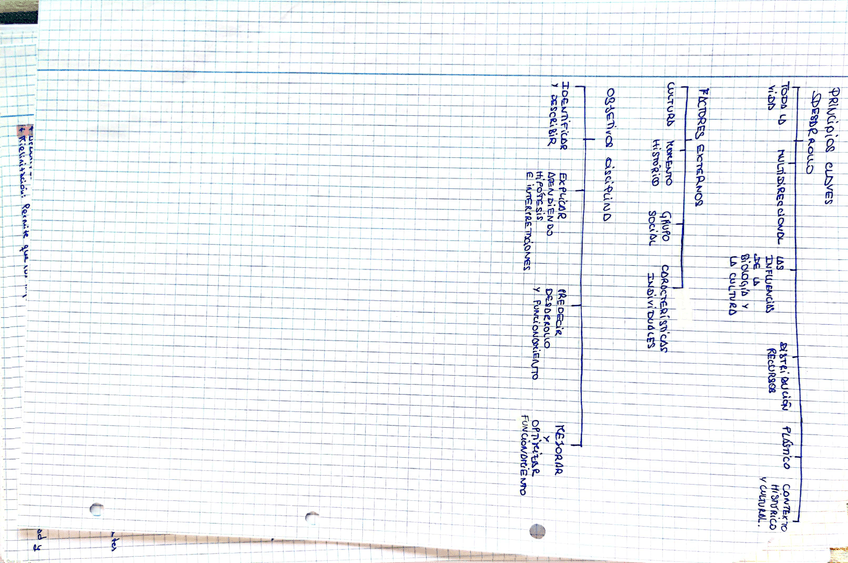 PRINCIPIOS CLAVES
DESARROLLO
TODA LA
VIDA
MULTIDIRECCIONAL
LAS
INFLUENCIAS
DE LA
BIOLOGÍA Y
LA CULTURA
DISTRIBUCIÓN
RECURSOS
PLÁSTICO
CONTEXTO
HISTÓRICO
Y CULTURAL.
FACTORES EXTERNOS
CULTURA
MOMENTO
HISTÓRICO
GRUPO
SOCIAL
CARACTERÍSTICAS
INDIVIDUALES
OBJETIVOS DISCIPLINA
IDENTIFICAR
Y DESCRIBIR
EXPLICAR
HIPÓTESIS
E INTERPRETACIONES
PREDECIR
DESARROLLO
Y FUNCIONAMIENTO
MEJORAR
Y
OPTIMIZAR
FUNCIONAMIENTO
Permite que